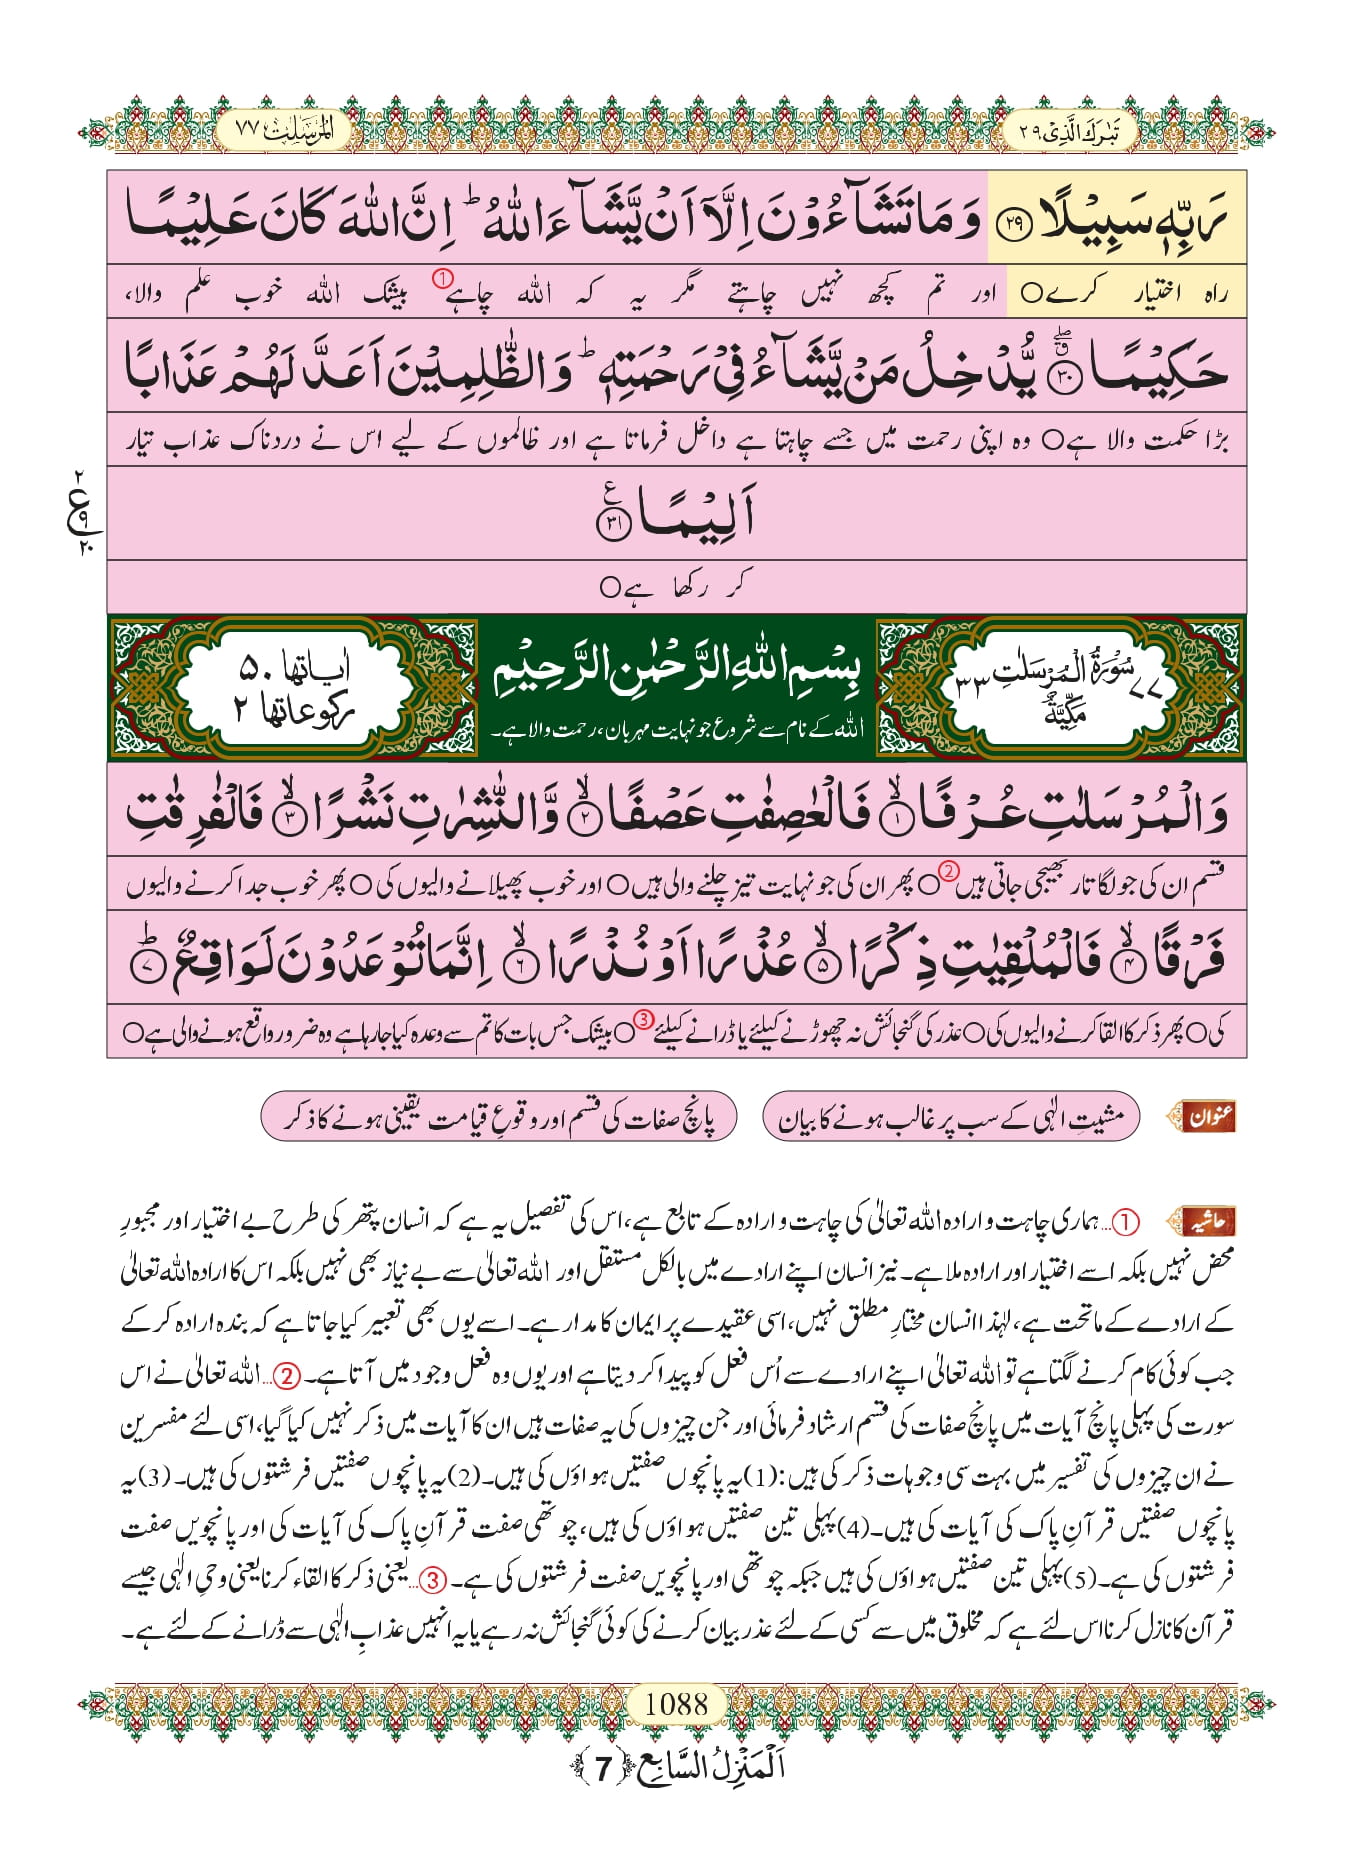 تَبٰرَكَ الَّذِیْ ۲۹
الْمُرْسَلٰت ۷۷
رَبِّهٖ سَبِیْلًا ﴿۲۹﴾ وَ مَا تَشَآءُوْنَ اِلَّاۤ اَنْ یَّشَآءَ اللّٰهُ ؕ اِنَّ اللّٰهَ كَانَ عَلِیْمًا
راہ اختیار کرے○ اور تم کچھ نہیں چاہتے مگر یہ کہ اللہ چاہے① بیشک اللہ خوب علم والا،
حَكِیْمًا ﴿۳۰﴾ۗۖ یُّدْخِلُ مَنْ یَّشَآءُ فِیْ رَحْمَتِهٖ ؕ وَ الظّٰلِمِیْنَ اَعَدَّ لَهُمْ عَذَابًا
بڑا حکمت والا ہے○ وہ اپنی رحمت میں جسے چاہتا ہے داخل فرماتا ہے اور ظالموں کے لیے اس نے دردناک عذاب تیار
اَلِیْمًا ﴿۳۱﴾ع
۲
ع
۹
۲۰
کر رکھا ہے○
۷۷ سُوْرَةُ الْمُرْسَلٰتِ ۳۳
مَكِّیَّةٌ
بِسْمِ اللّٰهِ الرَّحْمٰنِ الرَّحِیْمِ
اللہ کے نام سے شروع جو نہایت مہربان، رحمت والا ہے۔
اٰیاتها ۵۰
رکوعاتها ۲
وَ الْمُرْسَلٰتِ عُرْفًا ﴿۱﴾ۙ فَالْعٰصِفٰتِ عَصْفًا ﴿۲﴾ۙ وَّ النّٰشِرٰتِ نَشْرًا ﴿۳﴾ۙ فَالْفٰرِقٰتِ
قسم ان کی جو لگاتار بھیجی جاتی ہیں②○ پھر ان کی جو نہایت تیز چلنے والی ہیں○ اور خوب پھیلانے والیوں کی○ پھر خوب جدا کرنے والیوں
فَرْقًا ﴿۴﴾ۙ فَالْمُلْقِیٰتِ ذِكْرًا ﴿۵﴾ۙ عُذْرًا اَوْ نُذْرًا ﴿۶﴾ۙ اِنَّمَا تُوْعَدُوْنَ لَوَاقِعٌ ﴿۷﴾ؕ
کی○ پھر ذکر کا القا کرنے والیوں کی○ عذر کی گنجائش نہ چھوڑنے کیلئے یا ڈرانے کیلئے③○ بیشک جس بات کا تم سے وعدہ کیا جا رہا ہے وہ ضرور واقع ہونے والی ہے○
عنوان
مشیتِ الٰہی کے سب پر غالب ہونے کا بیان
پانچ صفات کی قسم اور وقوعِ قیامت یقینی ہونے کا ذکر
حاشیہ ①... ہماری چاہت و ارادہ اللہ تعالیٰ کی چاہت و ارادہ کے تابع ہے، اس کی تفصیل یہ ہے کہ انسان پتھر کی طرح بے اختیار اور مجبورِ
محض نہیں بلکہ اسے اختیار اور ارادہ ملا ہے۔ نیز انسان اپنے ارادے میں بالکل مستقل اور اللہ تعالیٰ سے بے نیاز بھی نہیں بلکہ اس کا ارادہ اللہ تعالیٰ
کے ارادے کے ماتحت ہے، لہٰذا انسان مختارِ مطلق نہیں، اسی عقیدے پر ایمان کا مدار ہے۔ اسے یوں بھی تعبیر کیا جاتا ہے کہ بندہ ارادہ کر کے
جب کوئی کام کرنے لگتا ہے تو اللہ تعالیٰ اپنے ارادے سے اُس فعل کو پیدا کر دیتا ہے اور یوں وہ فعل وجود میں آتا ہے۔ ②... اللہ تعالیٰ نے اس
سورت کی پہلی پانچ آیات میں پانچ صفات کی قسم ارشاد فرمائی اور جن چیزوں کی یہ صفات ہیں ان کا آیات میں ذکر نہیں کیا گیا، اسی لئے مفسرین
نے ان چیزوں کی تفسیر میں بہت سی وجوہات ذکر کی ہیں: (1) یہ پانچوں صفتیں ہواؤں کی ہیں۔ (2) یہ پانچوں صفتیں فرشتوں کی ہیں۔ (3) یہ
پانچوں صفتیں قرآنِ پاک کی آیات کی ہیں۔ (4) پہلی تین صفتیں ہواؤں کی ہیں، چوتھی صفت قرآنِ پاک کی آیات کی اور پانچویں صفت
فرشتوں کی ہے۔ (5) پہلی تین صفتیں ہواؤں کی ہیں جبکہ چوتھی اور پانچویں صفت فرشتوں کی ہے۔ ③... یعنی ذکر کا القاء کرنا یعنی وحیِ الٰہی جیسے
قرآن کا نازل کرنا اس لئے ہے کہ مخلوق میں سے کسی کے لئے عذر بیان کرنے کی کوئی گنجائش نہ رہے یا یہ انہیں عذابِ الٰہی سے ڈرانے کے لئے ہے۔
1088
اَلْمَنْزِلُ السَّابِع ﴿7﴾